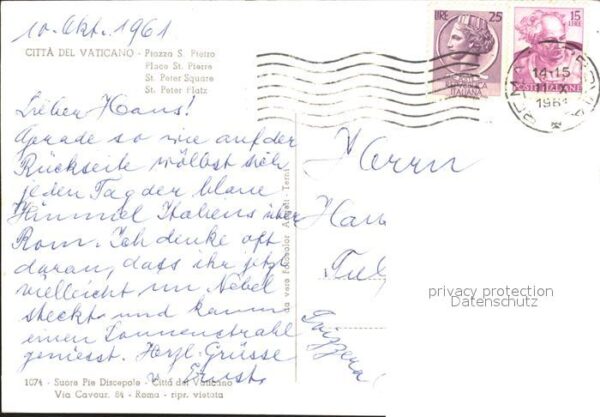 10. Okt. 1961
CITTÀ DEL VATICANO - Piazza S. Pietro
Place St. Pierre
St. Peter Square
St. Peter Platz
LIRE 25
15 LIRE
REPUBBLICA
ITALIANA
POSTE ITALIANE
ROMA
14-15
11 X
1961
Lieber Hans!
Gerade so wie auf der
Rückseite wölbt sich
jeden Tag der blaue
Himmel Italiens über
Rom. Ich denke oft
daran, dass ihr jetzt
vielleicht im Nebel
steckt und kaum
einen Sonnenstrahl
geniesst. Herzl. Grüsse
v. Ernst.
da vera Fotocolor - Terni
Herrn
Han
Svizzera
privacy protection
Datenschutz
1074 - Suore Pie Discepole - Città del Vaticano
Via Cavour, 84 - Roma - ripr. vietata